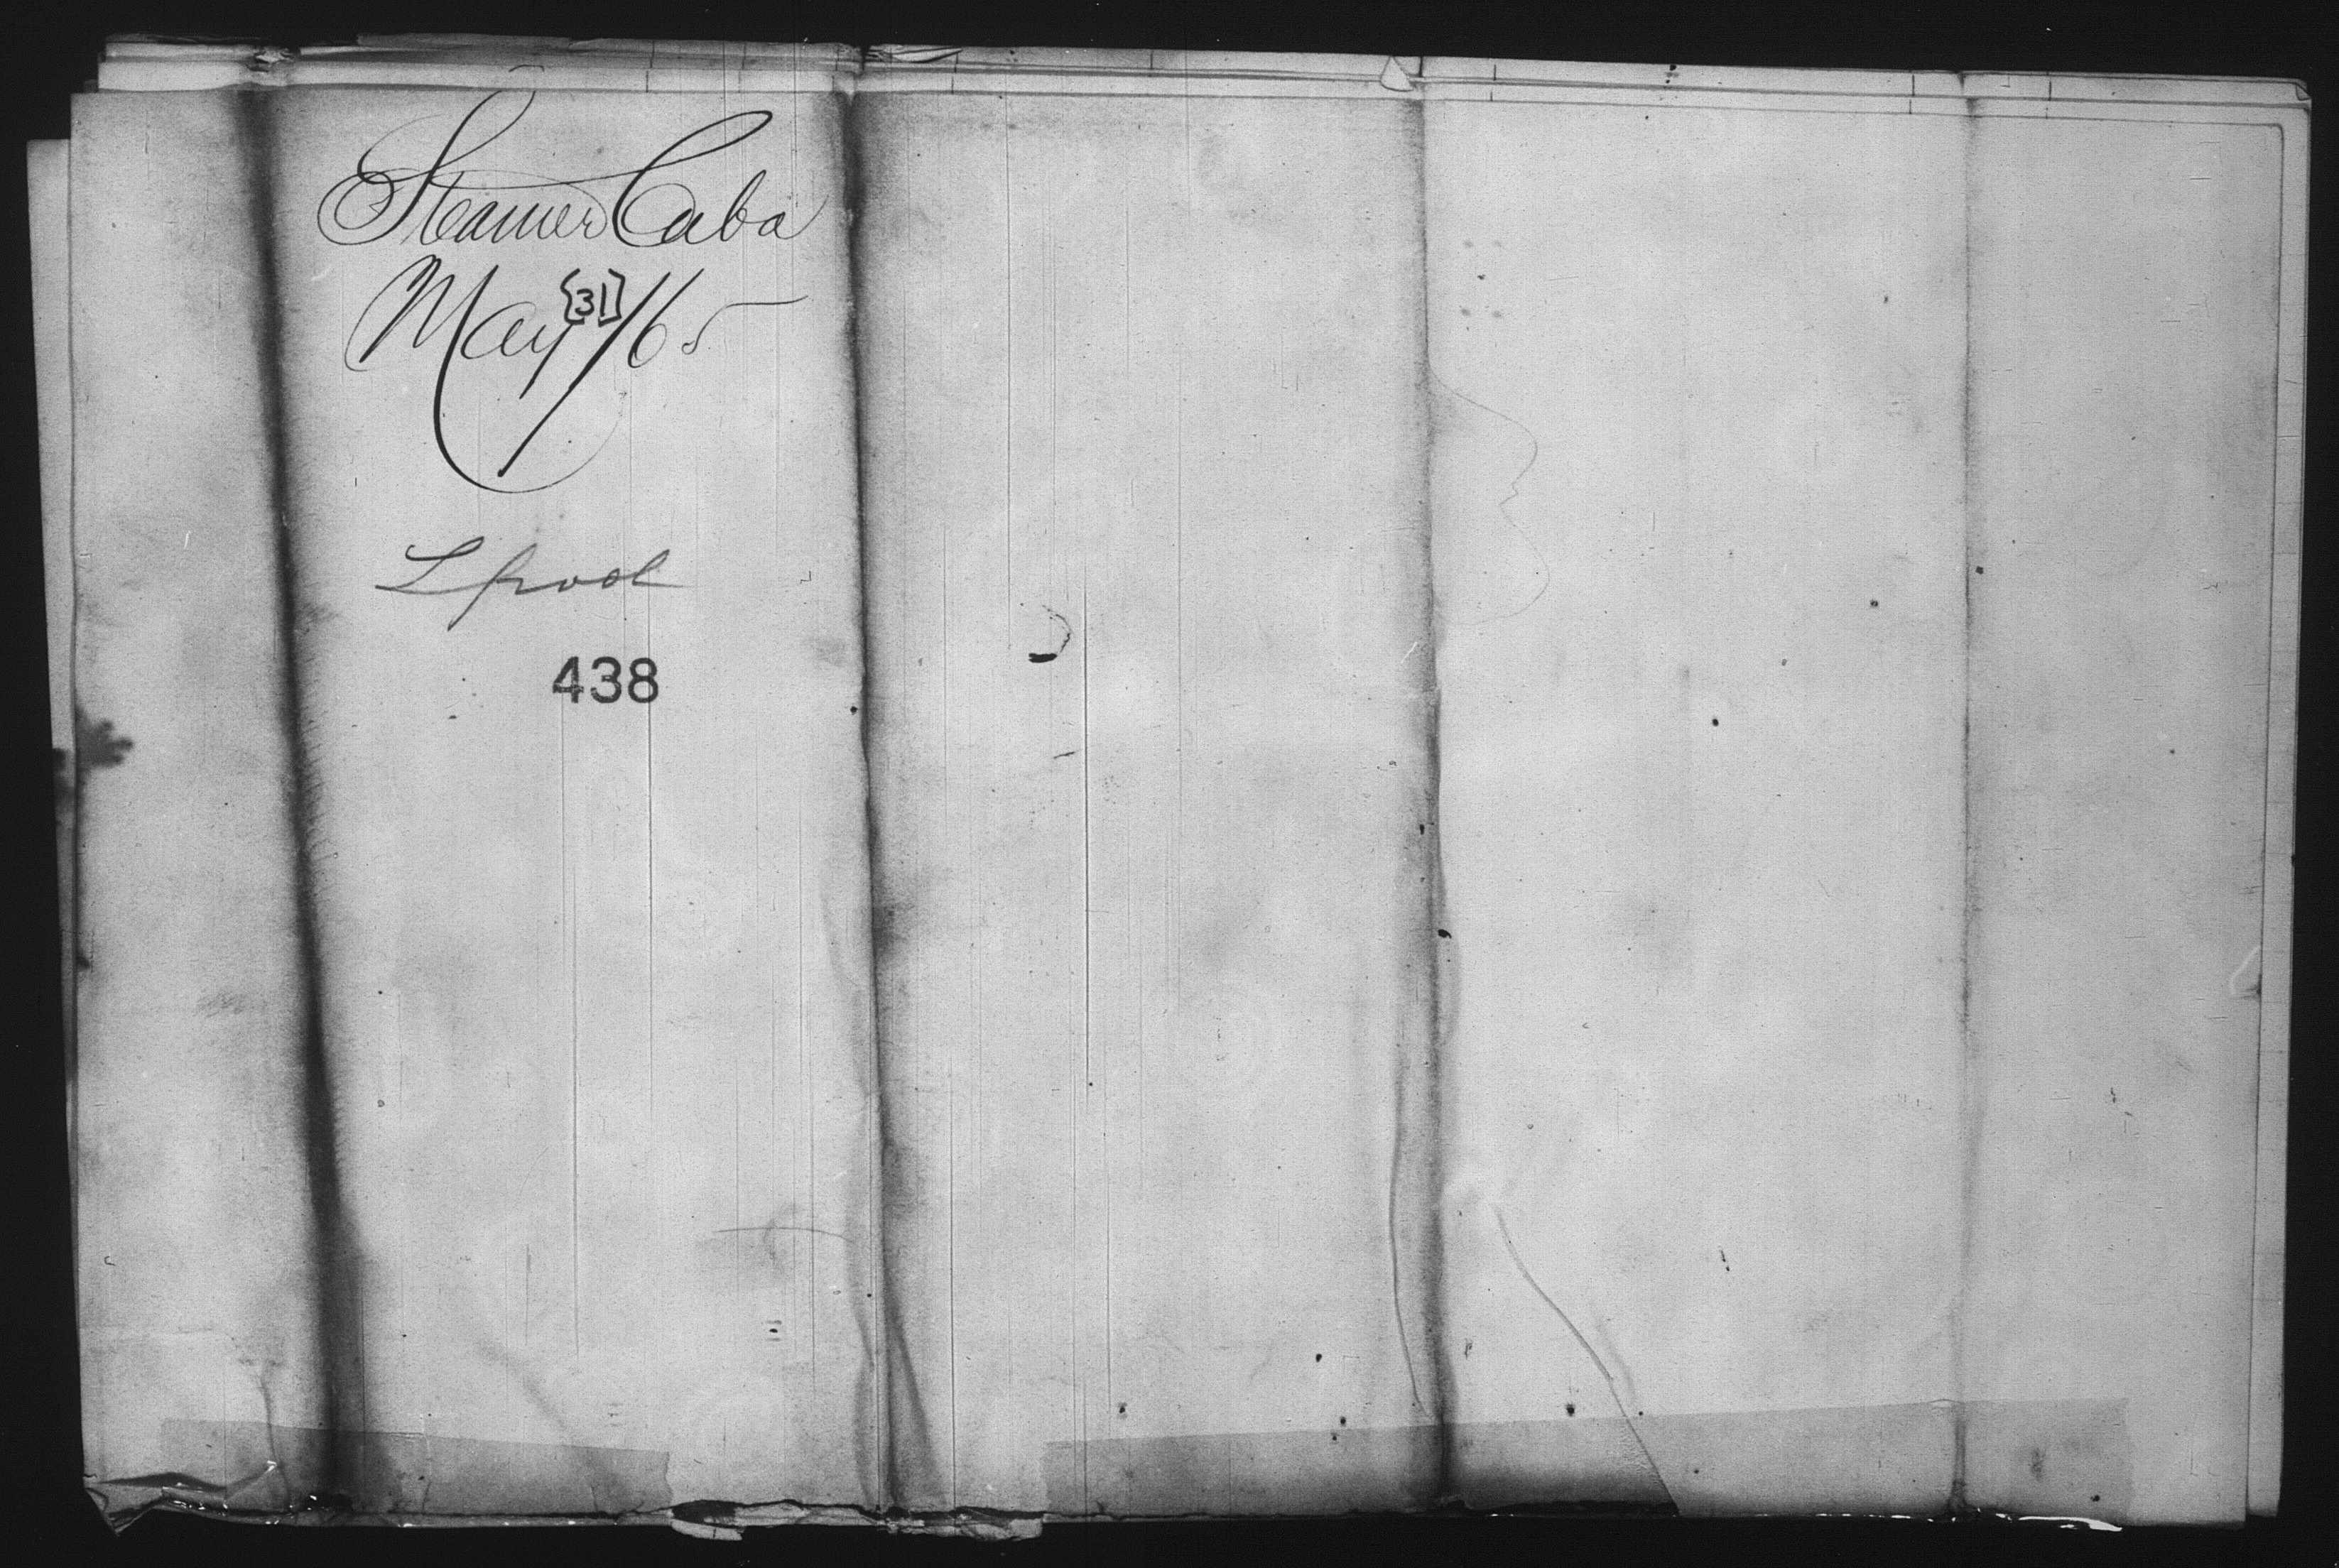 Steamer Caba
May [31]/65
Lpool
438